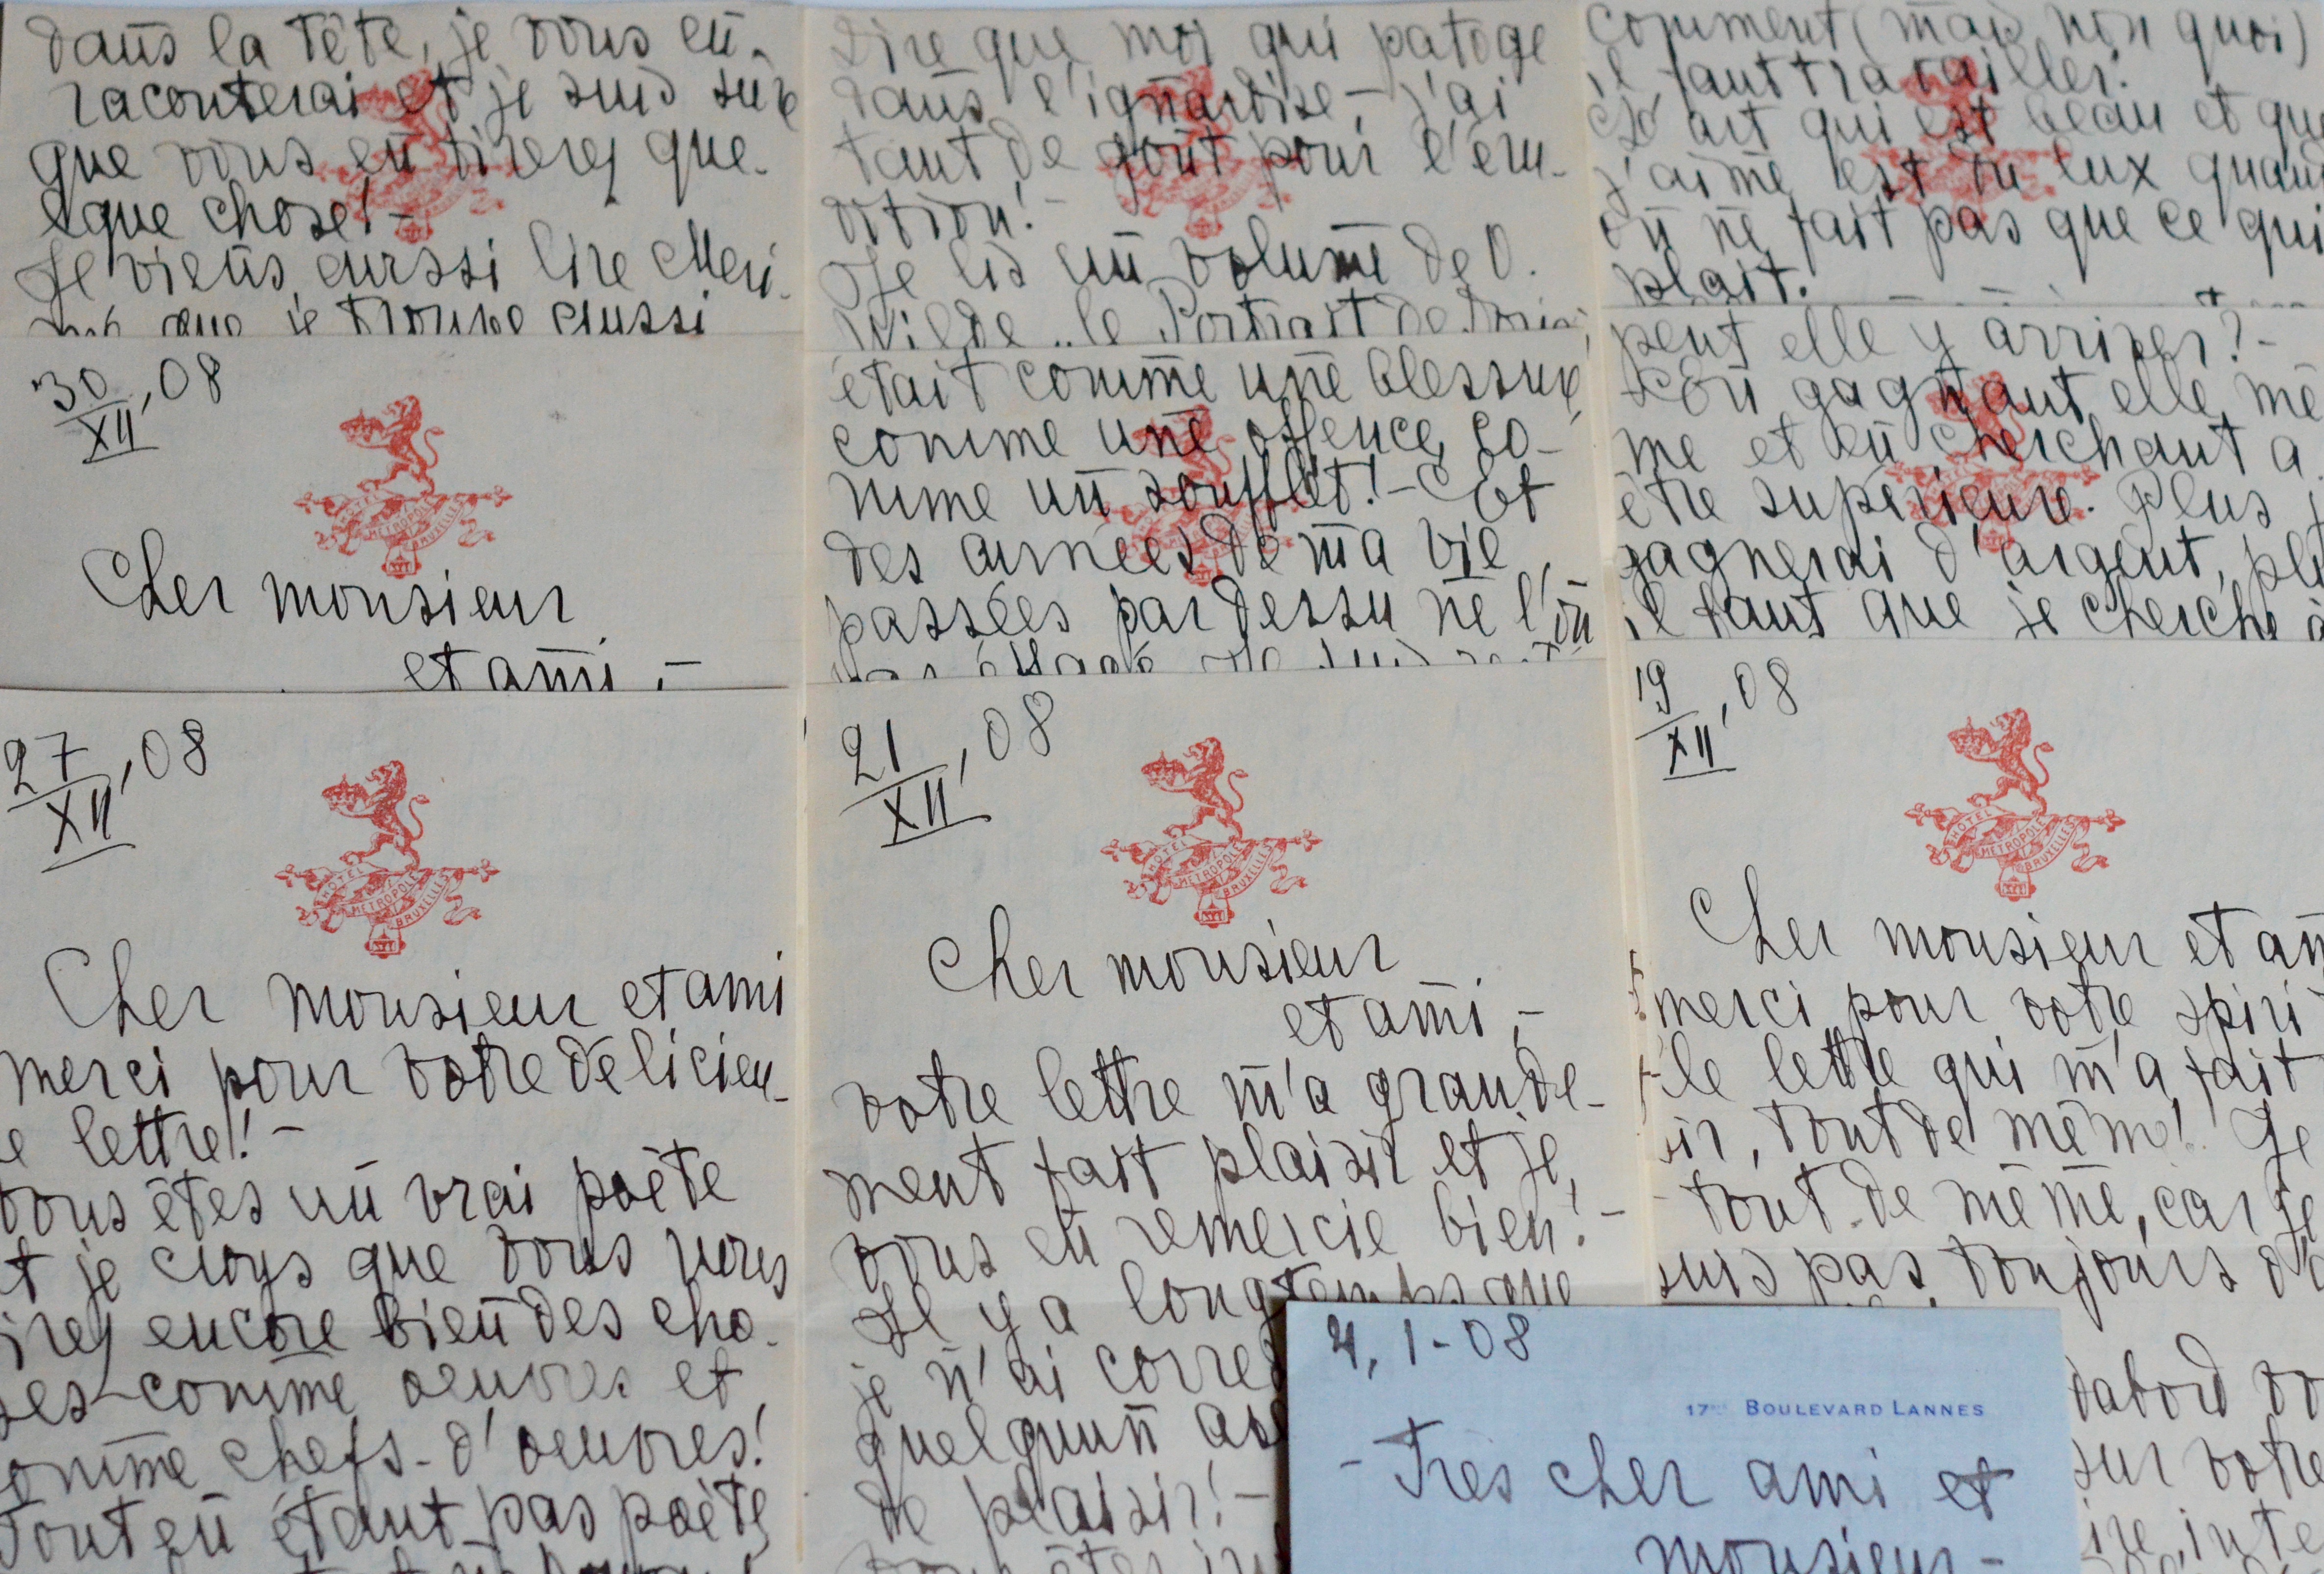 dans la tête, je vous en
raconterai et je suis sûre
que vous en tirerez que-
lque chose! -
Je viens aussi lire Meri-
que je trouve aussi
Dire que moi qui patoge
dans l'ignardise, - j'ai
tant de goût pour l'éru-
dition! -
Je lis un volume de O.
Wilde „le Portrait de Dorian
comment (mais non quoi)
il faut travailler.
L'art qui est beau et que
j'aime est du lux quand
on ne fait pas que ce qui
plait.
30/XII, 08
HOTEL METROPOLE BRUXELLES
Cher monsieur
et ami, -
était comme une blessure,
comme une offence, co-
mme un soufflet! - Et
des années de ma vie
passées par dessu ne l'on
pas éffacé
peut elle y arriver? -
En gagnant elle mê
me et en cherchant a
être supérieure. Plus j
gagnerai d'argent, plu
il faut que je cherche à
27/XII, 08
HOTEL METROPOLE BRUXELLES
Cher monsieur et ami
merci pour votre délicieu-
e lettre! -
vous êtes un vrai poète
t je croys que vous
irez encore bien des cho-
ses comme oeuvres et
omme chefs-d'oeuvres!
Tout en étant pas poète
21/XII, 08
HOTEL METROPOLE BRUXELLES
Cher monsieur
et ami, -
votre lettre m'a grande-
ment fait plaisir et je
vous en remercie bien! -
Il y a longtemps que
je n'ai corres
quelqunn
de plaisir! -
19/XII, 08
HOTEL METROPOLE BRUXELLES
Cher monsieur et am
merci pour votre spiri
le lettre qui m'a fait
ir, tout de même! Je
tout de même, car je
suis pas toujours d'
dabord vo
sur votre
ire, inte
4, 1-08
17 BOULEVARD LANNES
- Tres cher ami et
monsieur -